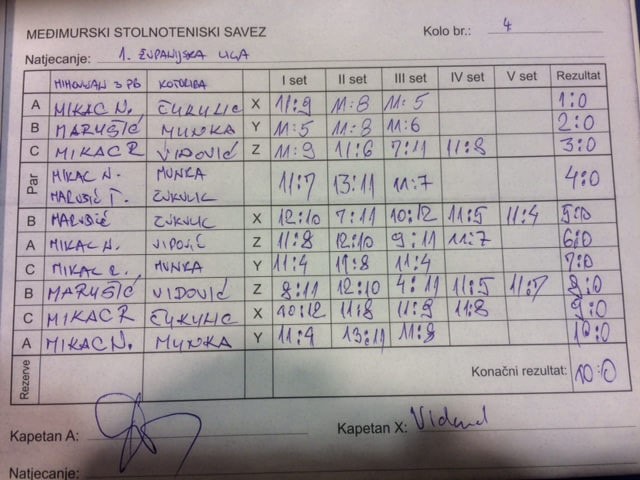 MEĐIMURSKI STOLNOTENISKI SAVEZ Kolo br.: 4
Natjecanje: 1. ŽUPANIJSKA LIGA
MIHOVLJAN 3 PB KOTORIBA I set II set III set IV set V set Rezultat
A MIKAC N. X 11:9 11:8 11:5 1:0
B MARUŠIĆ MUNKA Y 11:5 11:8 11:6 2:0
C MIKAC R VIDOVIĆ Z 11:9 11:6 7:11 11:8 3:0
Par MIKAC N. MUNKA 11:7 13:11 11:7 4:0
MARUŠIĆ T.
B MARUŠIĆ X 12:10 7:11 10:12 11:5 11:4 5:0
A MIKAC N. VIDOVIĆ Z 11:8 12:10 9:11 11:7 6:0
C MIKAC R. MUNKA Y 11:4 11:8 11:4 7:0
B MARUŠIĆ VIDOVIĆ Z 8:11 12:10 4:11 11:5 11:7 8:0
C MIKAC R X 10:12 11:8 11:9 11:8 9:0
A MIKAC N. MUNKA Y 11:4 13:11 11:8 10:0
Rezerve Konačni rezultat: 10:0
Kapetan A: Kapetan X:
Natjecanje: